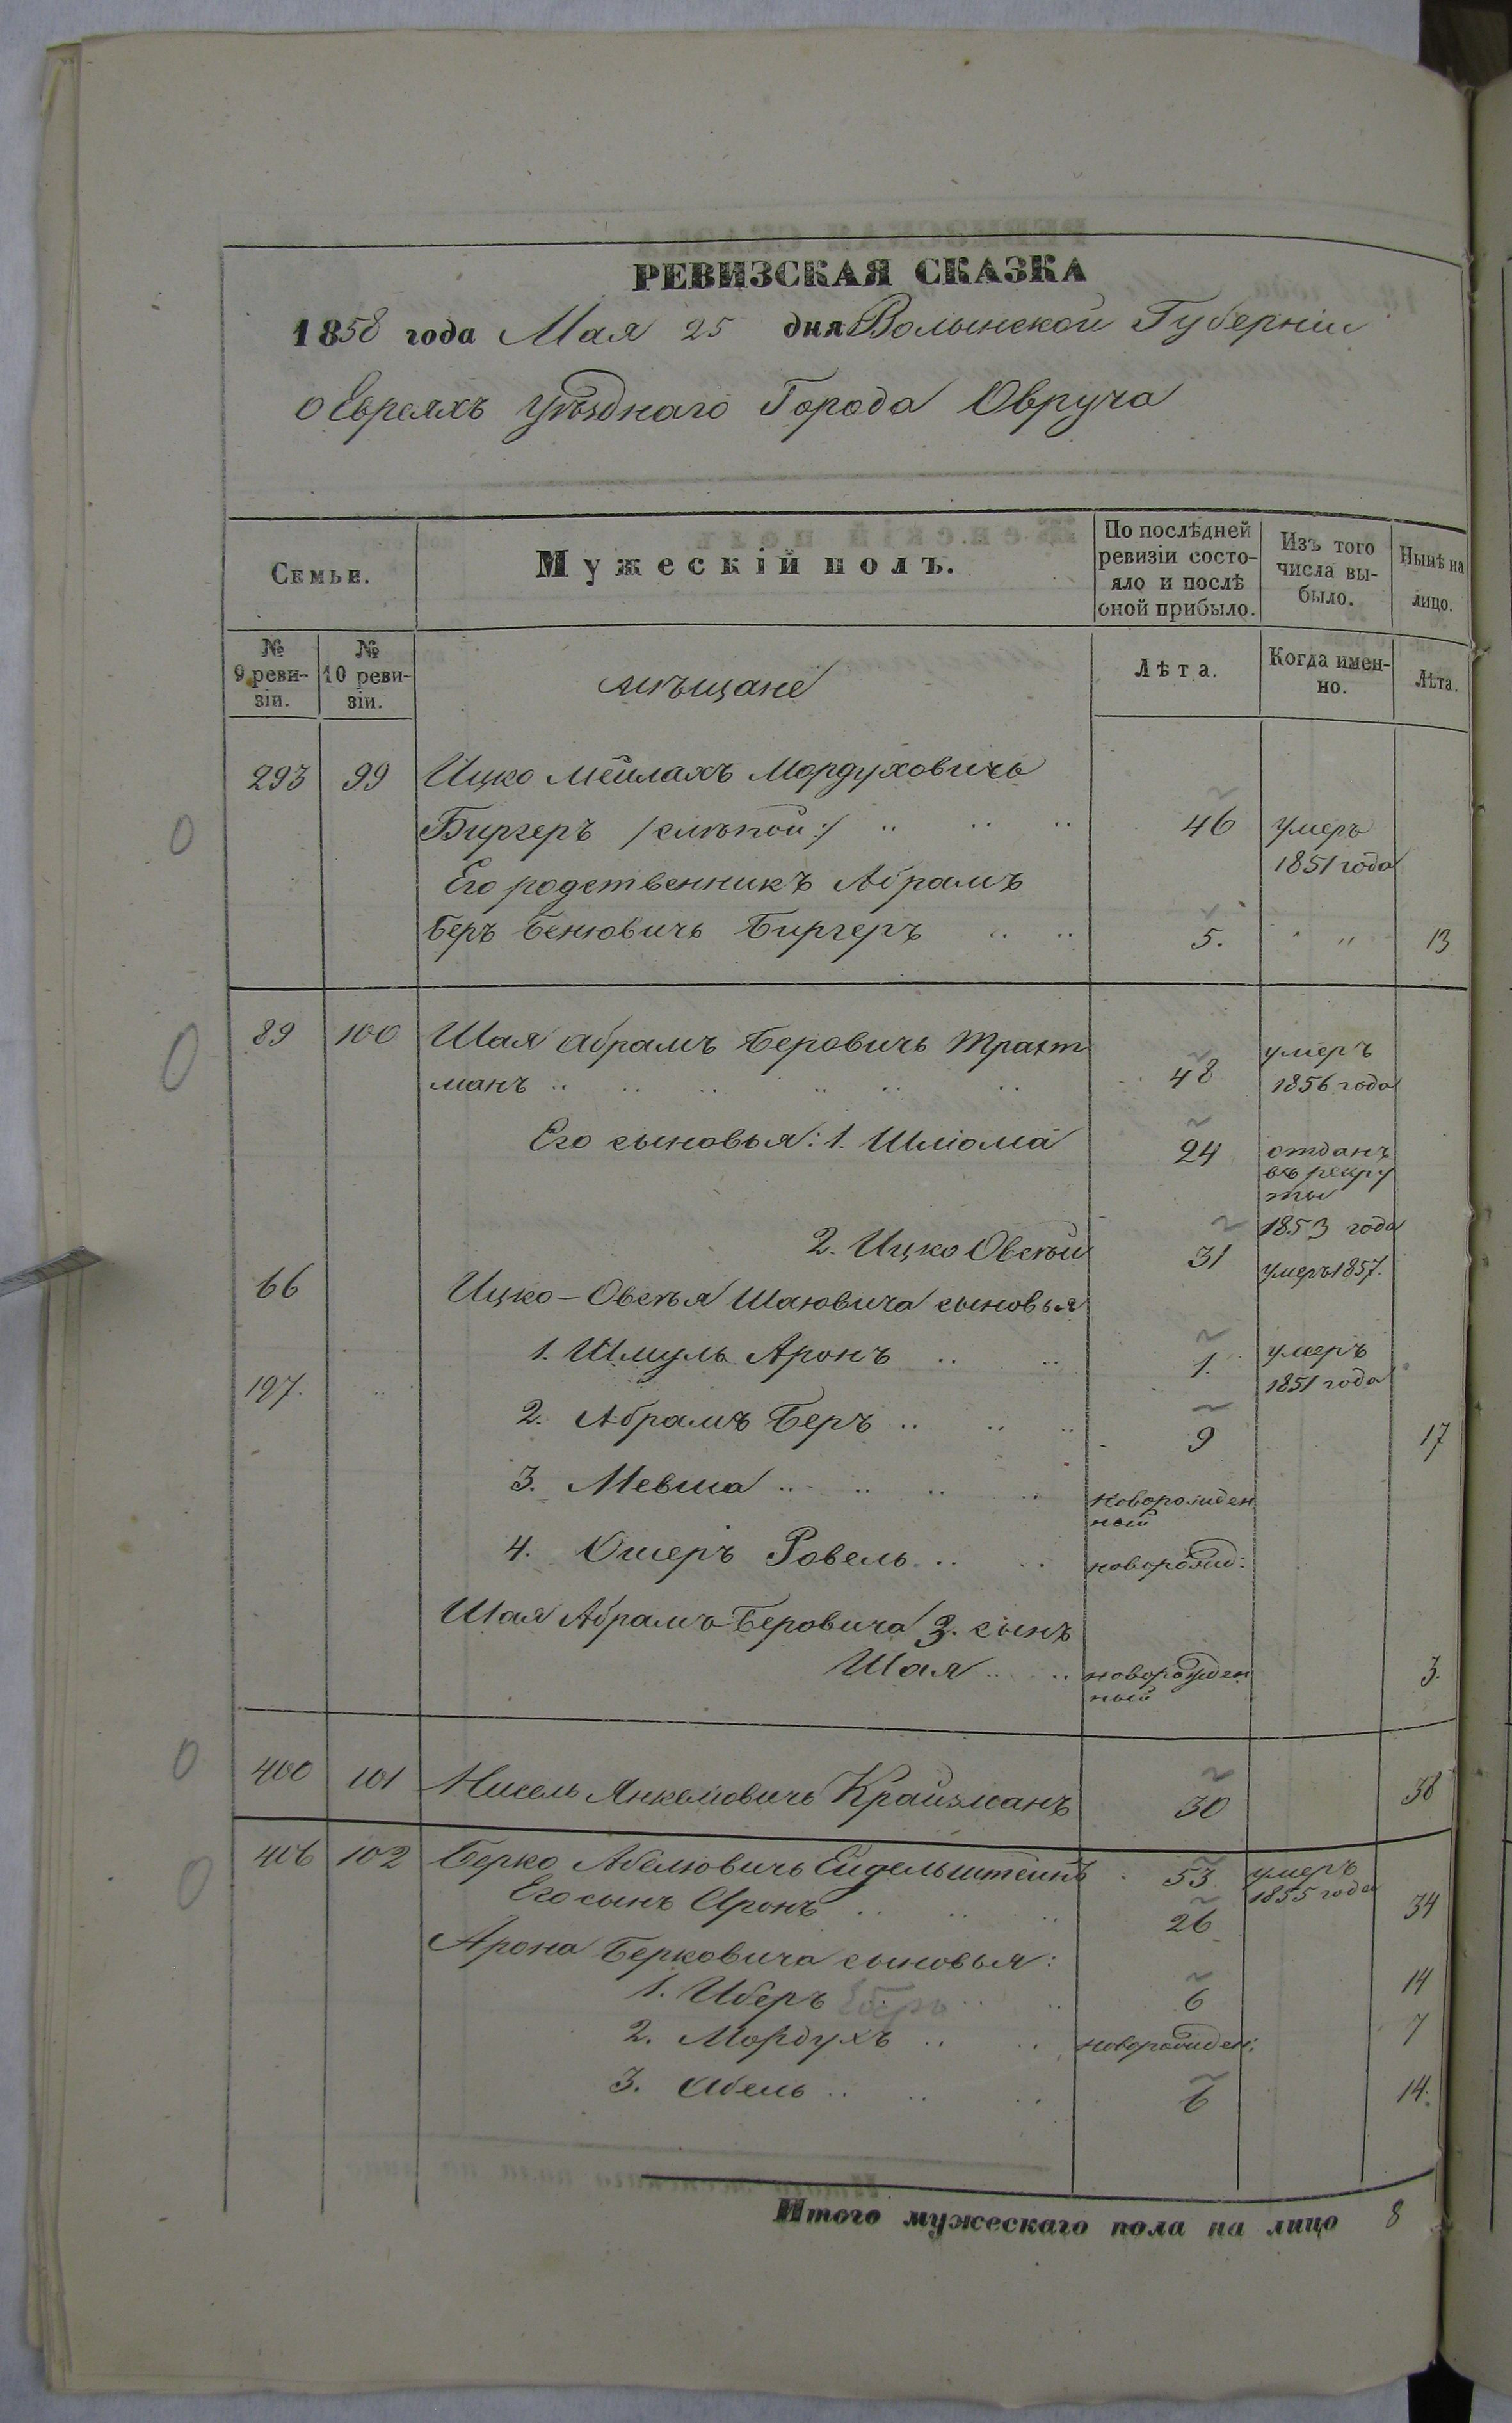 РЕВИЗСКАЯ СКАЗКА
1858 года Мая 25 дня Волынской Губерніи
о Евреяхъ уѣзднаго Города Овруча
Семьи.
Мужескій полъ.
По послѣдней ревизіи состо-
яло и послѣ оной прибыло.
Изъ того числа вы-
было.
Нынѣ на лицо.
№ 9 реви-
зіи.
№ 10 реви-
зіи.
мѣщане
Лѣта.
Когда имен-
но.
Лѣта.
293 99 Ицко Мейлахъ Мордуховичь
0 Биргеръ /:слѣпой:/ 46 умеръ
1851 года
Его родственникъ Абрамъ
Беръ Бенювичь Биргеръ 5. " 13
0 89 100 Шая Абрамъ Беровичь Трахт
манъ 48 умеръ
1856 года
Его сыновья: 1. Шліома 24 отданъ
въ рекру
ты
1853 года
2. Ицко Овсѣй 31 умеръ 1857.
66 Ицко-Овсѣя Шаювича сыновья
1. Шмуль Аронъ 1. умеръ
1851 года
197.
2. Абрамъ Беръ 9 17
3. Мевша новорожден
ный
4. Ошеръ Ровель новорожд:
Шая Абрамъ Беровича 3. сынъ
Шая новорожден
ный 3.
0 400 101 Нисель Янкелювичь Крайзманъ 30 38
0 406 102 Берко Абелювичь Ейдельштейнъ 53 умеръ
1855 года
Его сынъ Аронъ 26 34
Арона Берковича сыновья:
1. Иберъ Еберъ 6 14
2. Мордухъ новорожден: 7
3. Абель 6 14.
Итого мужескаго пола на лицо 8